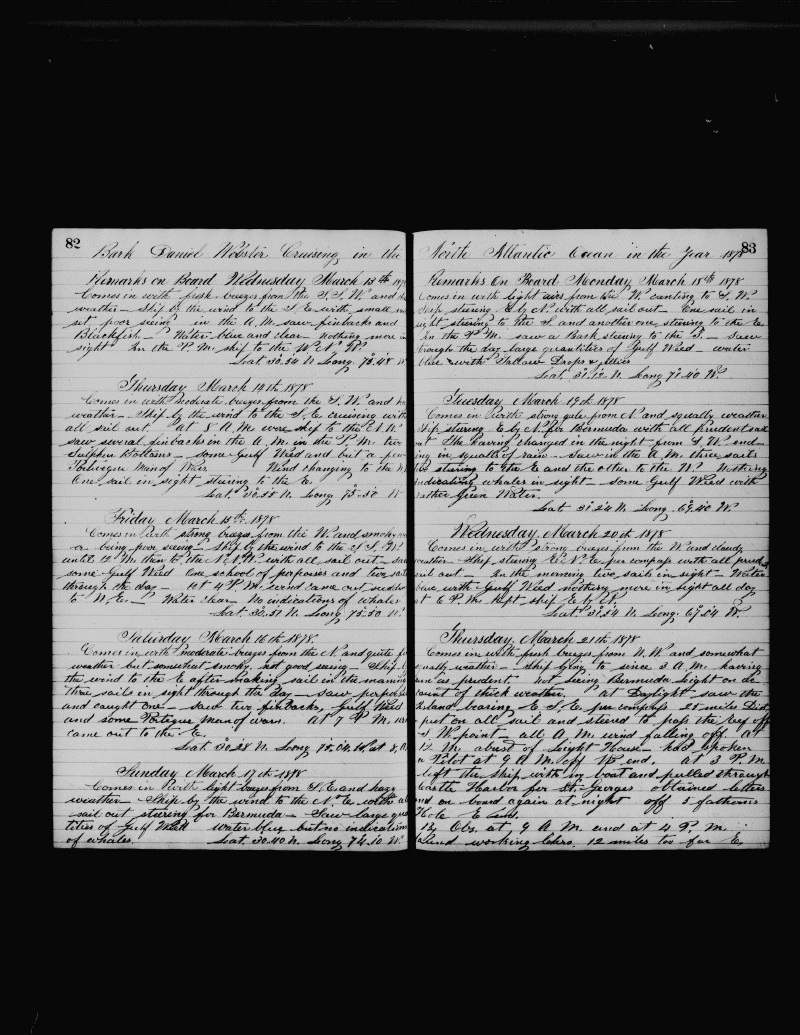 82
Bark Daniel Webster Cruising in the
Remarks on Board Wednesday March 13th 187
Comes in with fresh breezes from the S.S.W. and
weather - Ship by the wind to the S.E. with small
set poor seeing - in the A.M. saw finbacks and
Blackfish - Water blue and clear nothing more in
sight In the P.M. ship to the W.N.W.
Lat 30.54 N. Long 75.48 W
Thursday March 14th 1878
Comes in with moderate breezes from the S.W. and
weather - Ship by the wind to the S.E. cruising with
all sail out at 8 A.M. wore ship to the N.W.
saw several finbacks in the A.M. in the P.M. two
Sulphur Bottoms - some Gulf Weed and but a few
Portuegee Man of Wars Wind changing to the W
One sail in sight steering to the E.
Lat 30.58 N. Long 75.50 W
Friday March 15th 1878
Comes in with strong breezes from the W. and smoky
or being poor seeing - ship by the wind to the S.S.W.
until 12 M. then to the N.N.W. with all sail out -
some Gulf Weed One school of porpoises and two sails
through the day - At 4 P.M. wind came out sudden
to N.E. - Water clear No indications of whales
Lat 30.51 N. Long 75.50 W.
Saturday March 16th 1878.
Comes in with moderate breezes from the N. and quite
weather but somewhat smoky, not good seeing - Ship
the wind to the E after making sail in the morning
three sails in sight through the day - saw porpoises
and caught one - saw two finbacks, Gulf Weed
and some Portigue man of wars. At 7 P.M.
came out to the E.
Lat 30.28 N. Long 75.04 W. at 8
Sunday March 17th 1878
Comes in with light breezes from S.E. and hazy
weather - Ship by the wind to the N.E. with all
sail out steering for Bermuda - Saw large quan
tities of Gulf Weed water blue but no indications
of whales. Lat 30.40 N. Long 74.10 W.
83
North Atlantic Ocean in the Year 1878
Remarks On Board Monday March 18th 1878
Comes in with light airs from the W. canting to S.W.
Ship steering E by N. with all sail out - One sail in
sight steering to the S and another one steering to the E.
In the P.M. saw a Bark steering to the S. - Saw
through the day large quantities of Gulf Weed - water
blue with Tallow Drops &
Lat 31.12 N. Long 71.40 W.
Tuesday March 19th 1878
Comes in with strong gale from N and squally weather
Ship steering E by N for Bermuda with all prudent sail
out The having changed in the night from S.W. end-
ing in squalls of rain - Saw in the A.M. three sails
two steering to the E and the other to the W. Nothing
indicating whales in sight - some Gulf Weed with
rather Green Water.
Lat 31.24 N. Long. 69.40 W.
Wednesday March 20th 1878
Comes in with strong breezes from the W. and cloudy
weather - Ship steering E.N.E. per compass with all prud
sail out - In the morning two sails in sight - Water
blue with Gulf Weed nothing more in sight all day
at 6 P.M. kept ship E. by N.
Lat 31.54 N. Long. 67.24 W.
Thursday March 21th 1878
Comes in with fresh breezes from N.W. and somewhat
squally weather - Ship lying to since 3 A.M. having
run as prudent not seeing Bermuda Light on ac
count of thick weather. At Daylight saw the
Island bearing E.S.E. per compass 25 miles Dist
put on all sail and steered to pass the reef off
S.W. point - all A.M. wind falling off At
12 M. abrest of Light House - had spoken
a Pilot at 9 A.M. off W. end. at 3 P.M.
left the ship with in boat and pulled through
Castle Harbor for St. Georges obtained letters
and on board again at night off 5 fathoms
Hole E end.
By Obs. at 9 A.M. and at 4 P.M.
Island working Chro. 12 miles too far E.